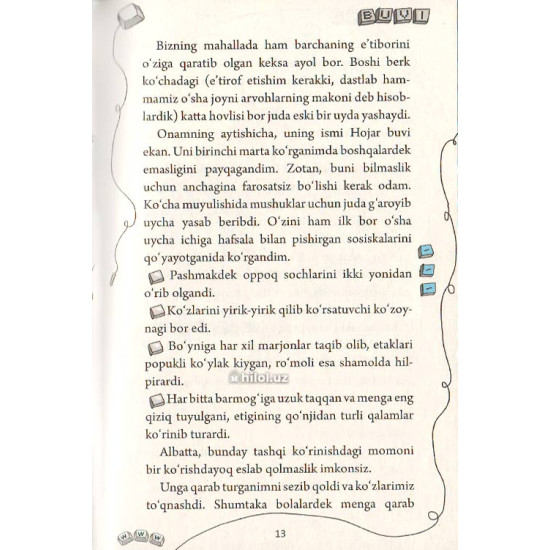 BUVI
Bizning mahallada ham barchaning e'tiborini
o'ziga qaratib olgan keksa ayol bor. Boshi berk
ko'chadagi (e'tirof etishim kerakki, dastlab ham-
mamiz o'sha joyni arvohlarning makoni deb hisob-
lardik) katta hovlisi bor juda eski bir uyda yashaydi.
Onamning aytishicha, uning ismi Hojar buvi
ekan. Uni birinchi marta ko'rganimda boshqalardek
emasligini payqagandim. Zotan, buni bilmaslik
uchun anchagina farosatsiz bo'lishi kerak odam.
Ko'cha muyulishida mushuklar uchun juda g'aroyib
uycha yasab beribdi. O'zini ham ilk bor o'sha
uycha ichiga hafsala bilan pishirgan sosiskalarini
qo'yayotganida ko'rgandim.
Pashmakdek oppoq sochlarini ikki yonidan
o'rib olgandi.
Ko'zlarini yirik-yirik qilib ko'rsatuvchi ko'zoy-
nagi bor edi.
Bo'yniga har xil marjonlar taqib olib, etaklari
popukli ko'ylak kiygan, ro'moli esa shamolda hil-
pirardi.
hilol.uz
Har bitta barmog'iga uzuk taqqan va menga eng
qiziq tuyulgani, etigining qo'njidan turli qalamlar
ko'rinib turardi.
Albatta, bunday tashqi ko'rinishdagi momoni
bir ko'rishdayoq eslab qolmaslik imkonsiz.
Unga qarab turganimni sezib qoldi va ko'zlarimiz
to'qnashdi. Shumtaka bolalardek menga qarab
W W W
13